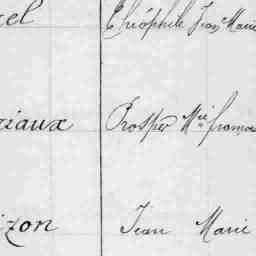 el Théophile Jean Marie
riaux Prosper Mie france
izon Jean Marie